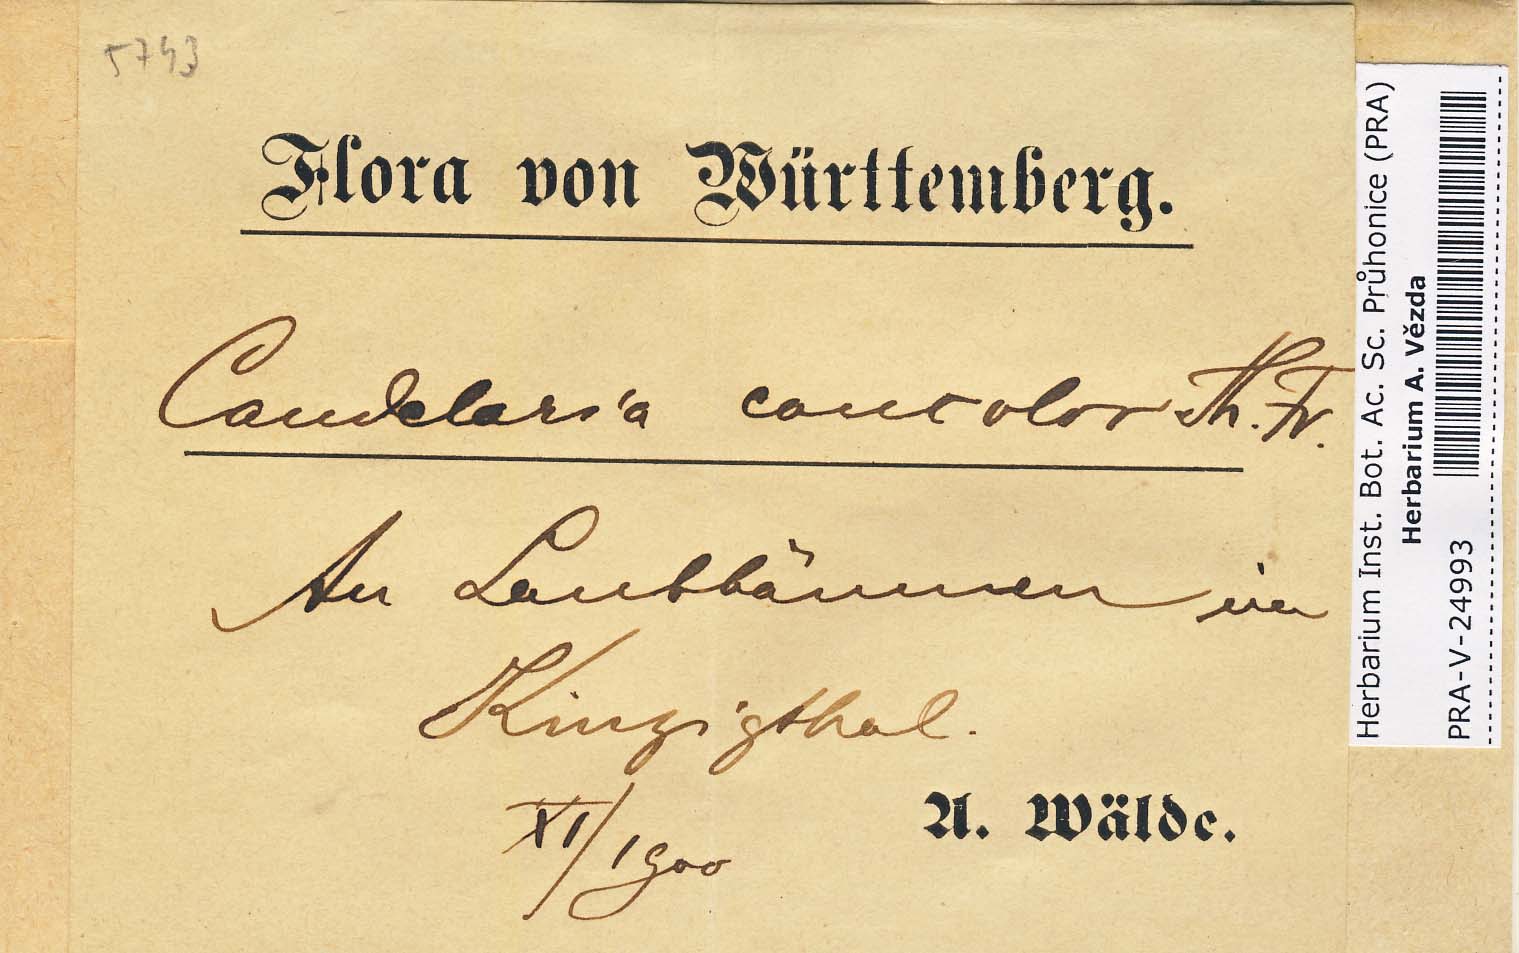 5743
Flora von Württemberg.
Candelaria concolor Th. Fr.
An Laubbäumen im
Kinzigthal.
XI/1900
A. Wälde.
Herbarium Inst. Bot. Ac. Sc. Průhonice (PRA)
Herbarium A. Vězda
PRA-V-24993